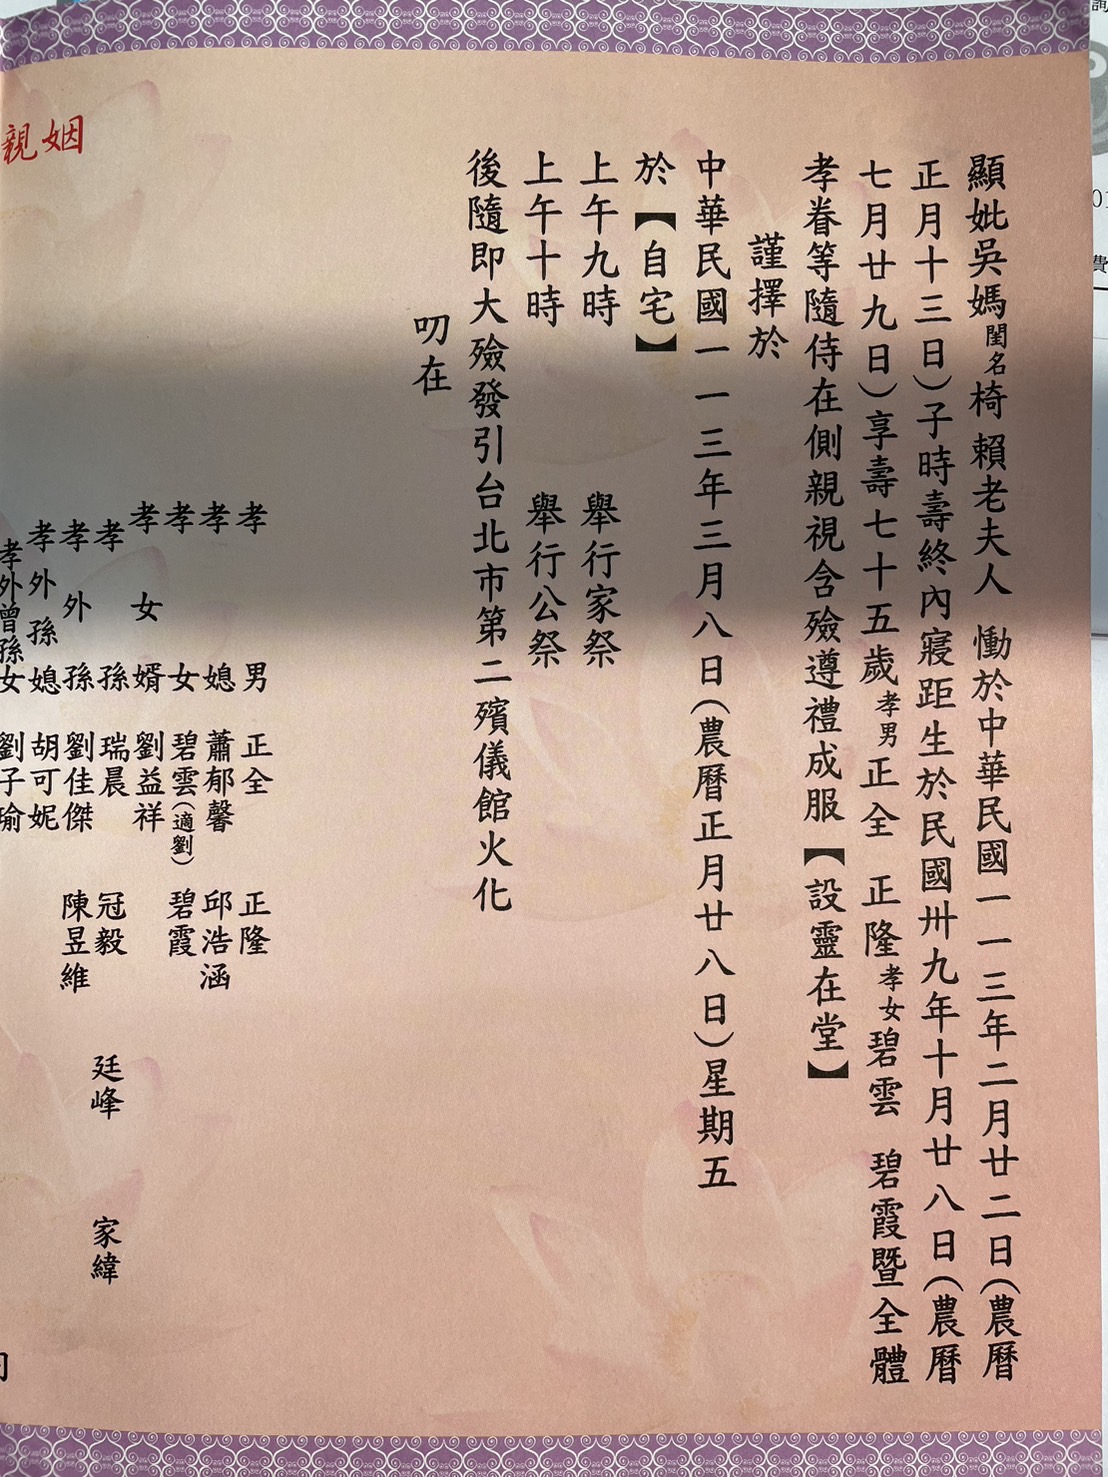 顯妣吳媽閨名椅 賴老夫人 慟於中華民國一一三年二月廿二日(農曆
正月十三日)子時壽終內寢距生於民國卅九年十月廿八日(農曆
七月廿九日)享壽七十五歲孝男正全 正隆孝女碧雲 碧霞暨全體
孝眷等隨侍在側親視含殮遵禮成服【設靈在堂】
謹擇於
中華民國一一三年三月八日(農曆正月廿八日)星期五
於【自宅】
上午九時 舉行家祭
上午十時 舉行公祭
後隨即大殮發引台北市第二殯儀館火化
叨在
姻親
孝男 正全 正隆
孝媳 蕭郁馨 邱浩涵
孝女 碧雲(適劉) 碧霞
孝女婿 劉益祥
孝孫 瑞晨 冠毅 廷峰 家緯
孝外孫 劉佳傑 陳昱維
孝外孫媳 胡可妮
孝外曾孫女 劉子瑜